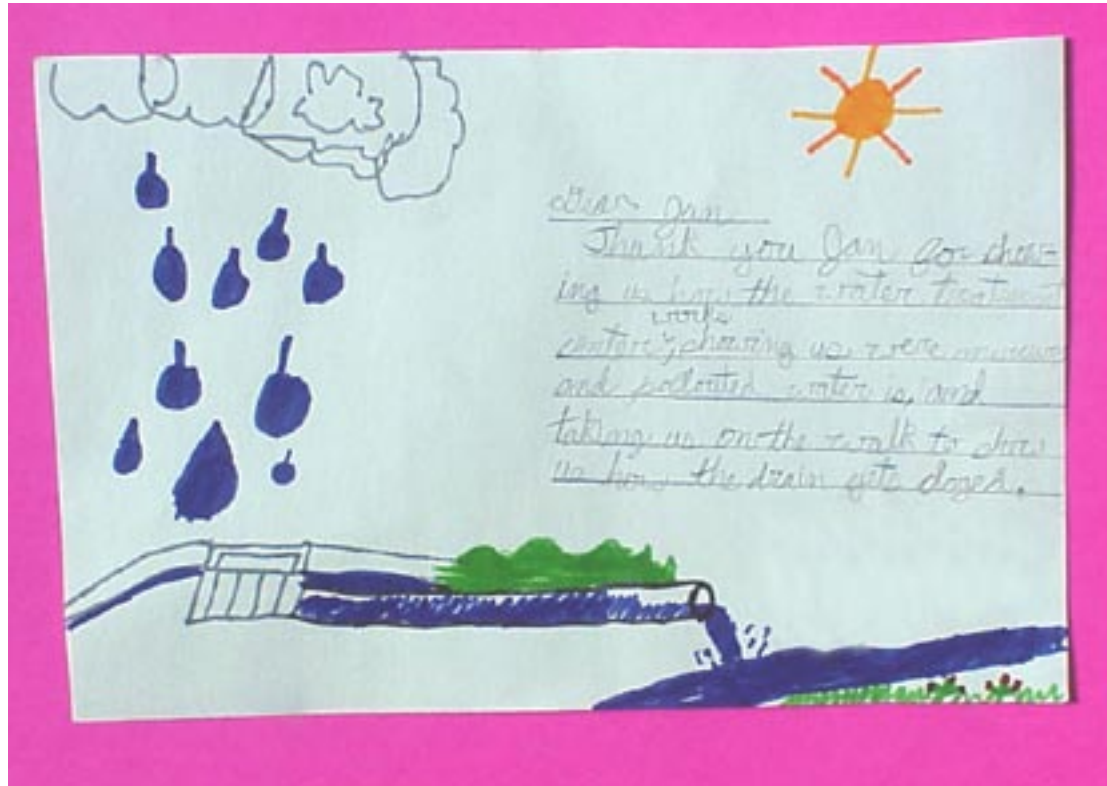 Dear Jan
Thank you Jan for show-
ing us how the water treatment
works
center, showing us were
and polloated water is, and
taking us on the walk to show
us how the drain gets